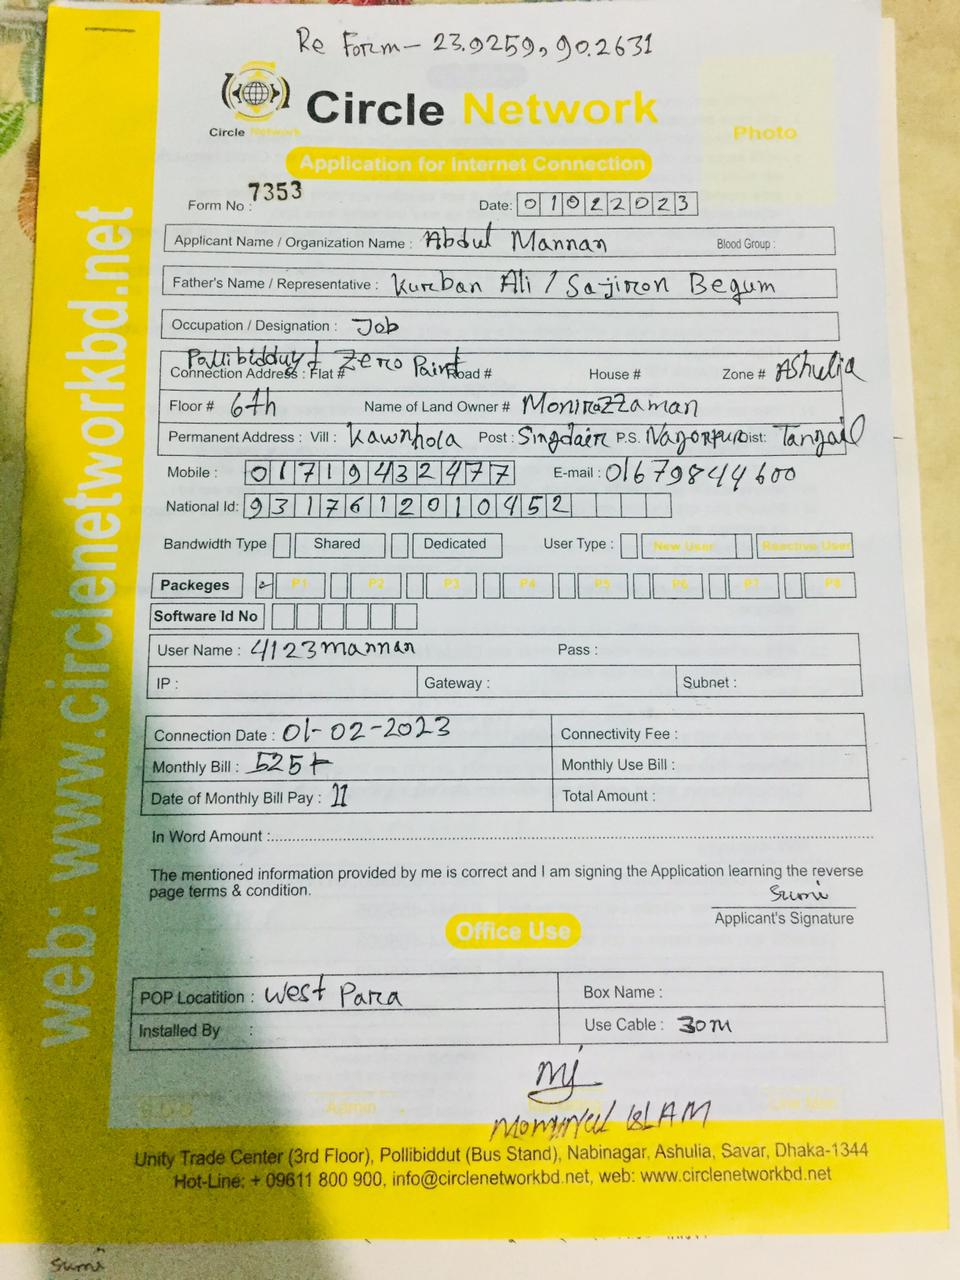 Re Form - 23.9259, 90.2631
Circle Network
Circle Network
Photo
Application for Internet Connection
Form No : 7353
Date: 01022023
Applicant Name / Organization Name : Abdul Mannan Blood Group :
Father's Name / Representative : Kurban Ali / Sajiron Begum
Occupation / Designation : Job
Pollibidduyt Zero Paint
Connection Address : Flat # Road # House # Zone # Ashulia
Floor # 6th Name of Land Owner # Monirazzaman
Permanent Address : Vill : Kawnhola Post : Singdair P.S. Nagorpur Dist: Tangail
Mobile : 01719432477 E-mail : 01679844600
National Id: 9317612010452
Bandwidth Type Shared Dedicated User Type : New User Reactive User
Packeges P1 P2 P3 P4 P5 P6 P7 P8
Software Id No
User Name : 4123mannan Pass :
IP : Gateway : Subnet :
Connection Date : 01-02-2023 Connectivity Fee :
Monthly Bill : 525 Monthly Use Bill :
Date of Monthly Bill Pay : 11 Total Amount :
In Word Amount :
The mentioned information provided by me is correct and I am signing the Application learning the reverse
page terms & condition.
Sumi
Applicant's Signature
Office Use
POP Locatition : West Para Box Name :
Installed By : Use Cable : 30m
Admin Marketing Line Man
ISLAM
Unity Trade Center (3rd Floor), Pollibiddut (Bus Stand), Nabinagar, Ashulia, Savar, Dhaka-1344
Hot-Line: + 09611 800 900, info@circlenetworkbd.net, web: www.circlenetworkbd.net
web: www.circlenetworkbd.net
Sumi